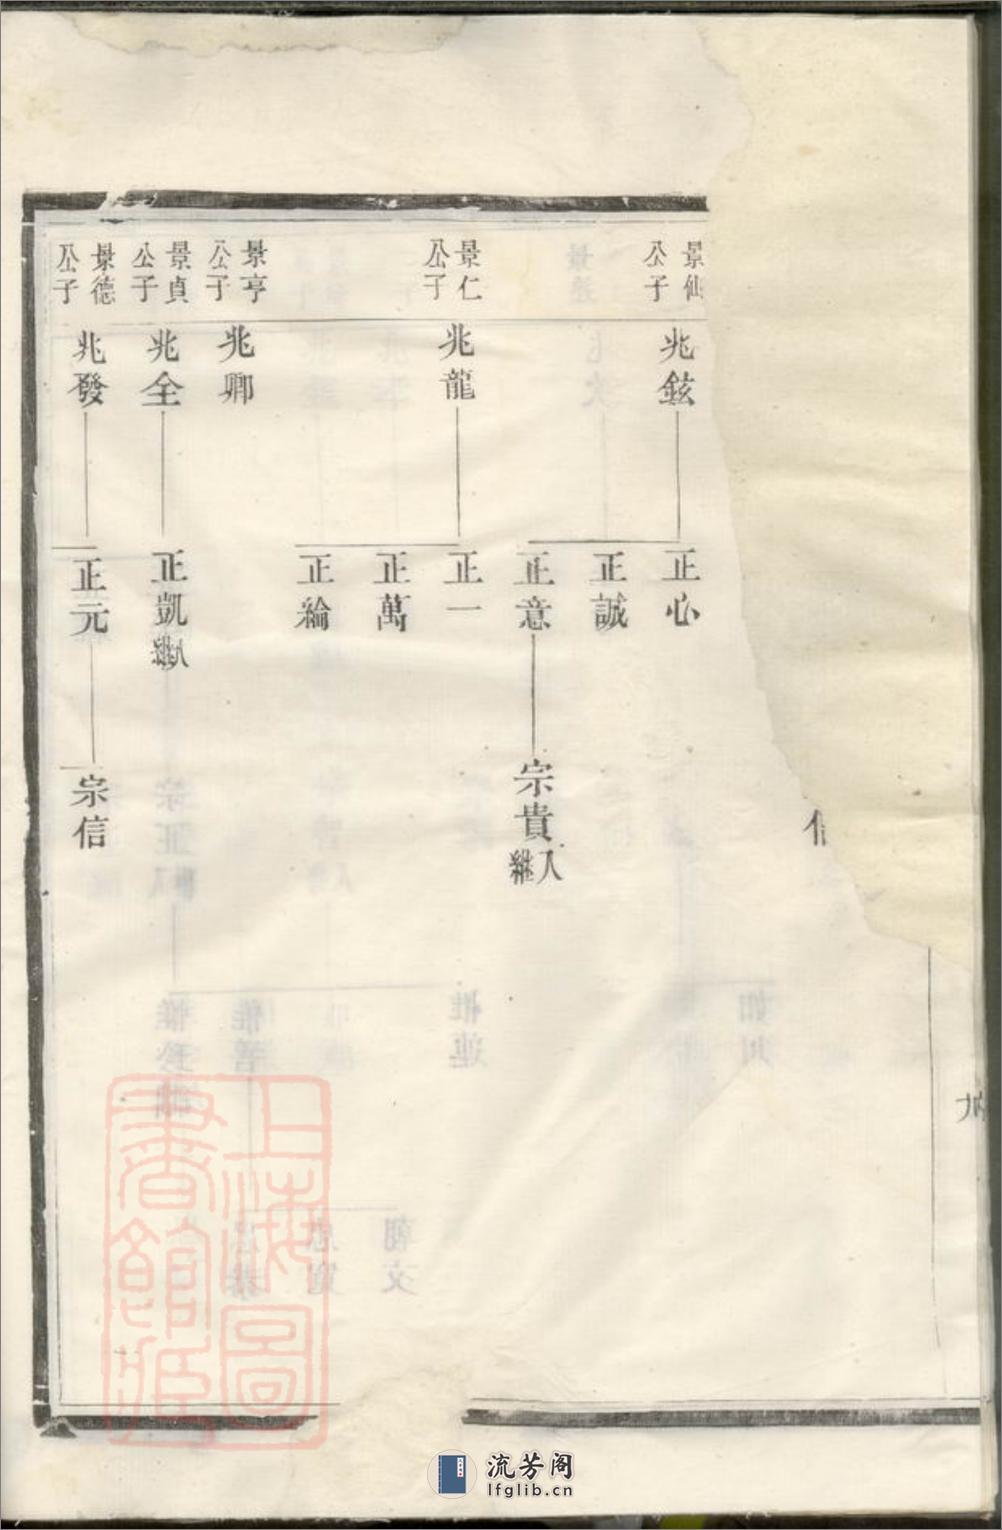 景仙公子
兆鉉
正心
正誠
正意
宗貴入繼
景仁公子
兆龍
正一
正萬
正綸
景亨公子
兆卿
景貞公子
兆全
正凱入繼
景德公子
兆發
正元
宗信
上海圖書館藏
流芳阁
lfglib.cn